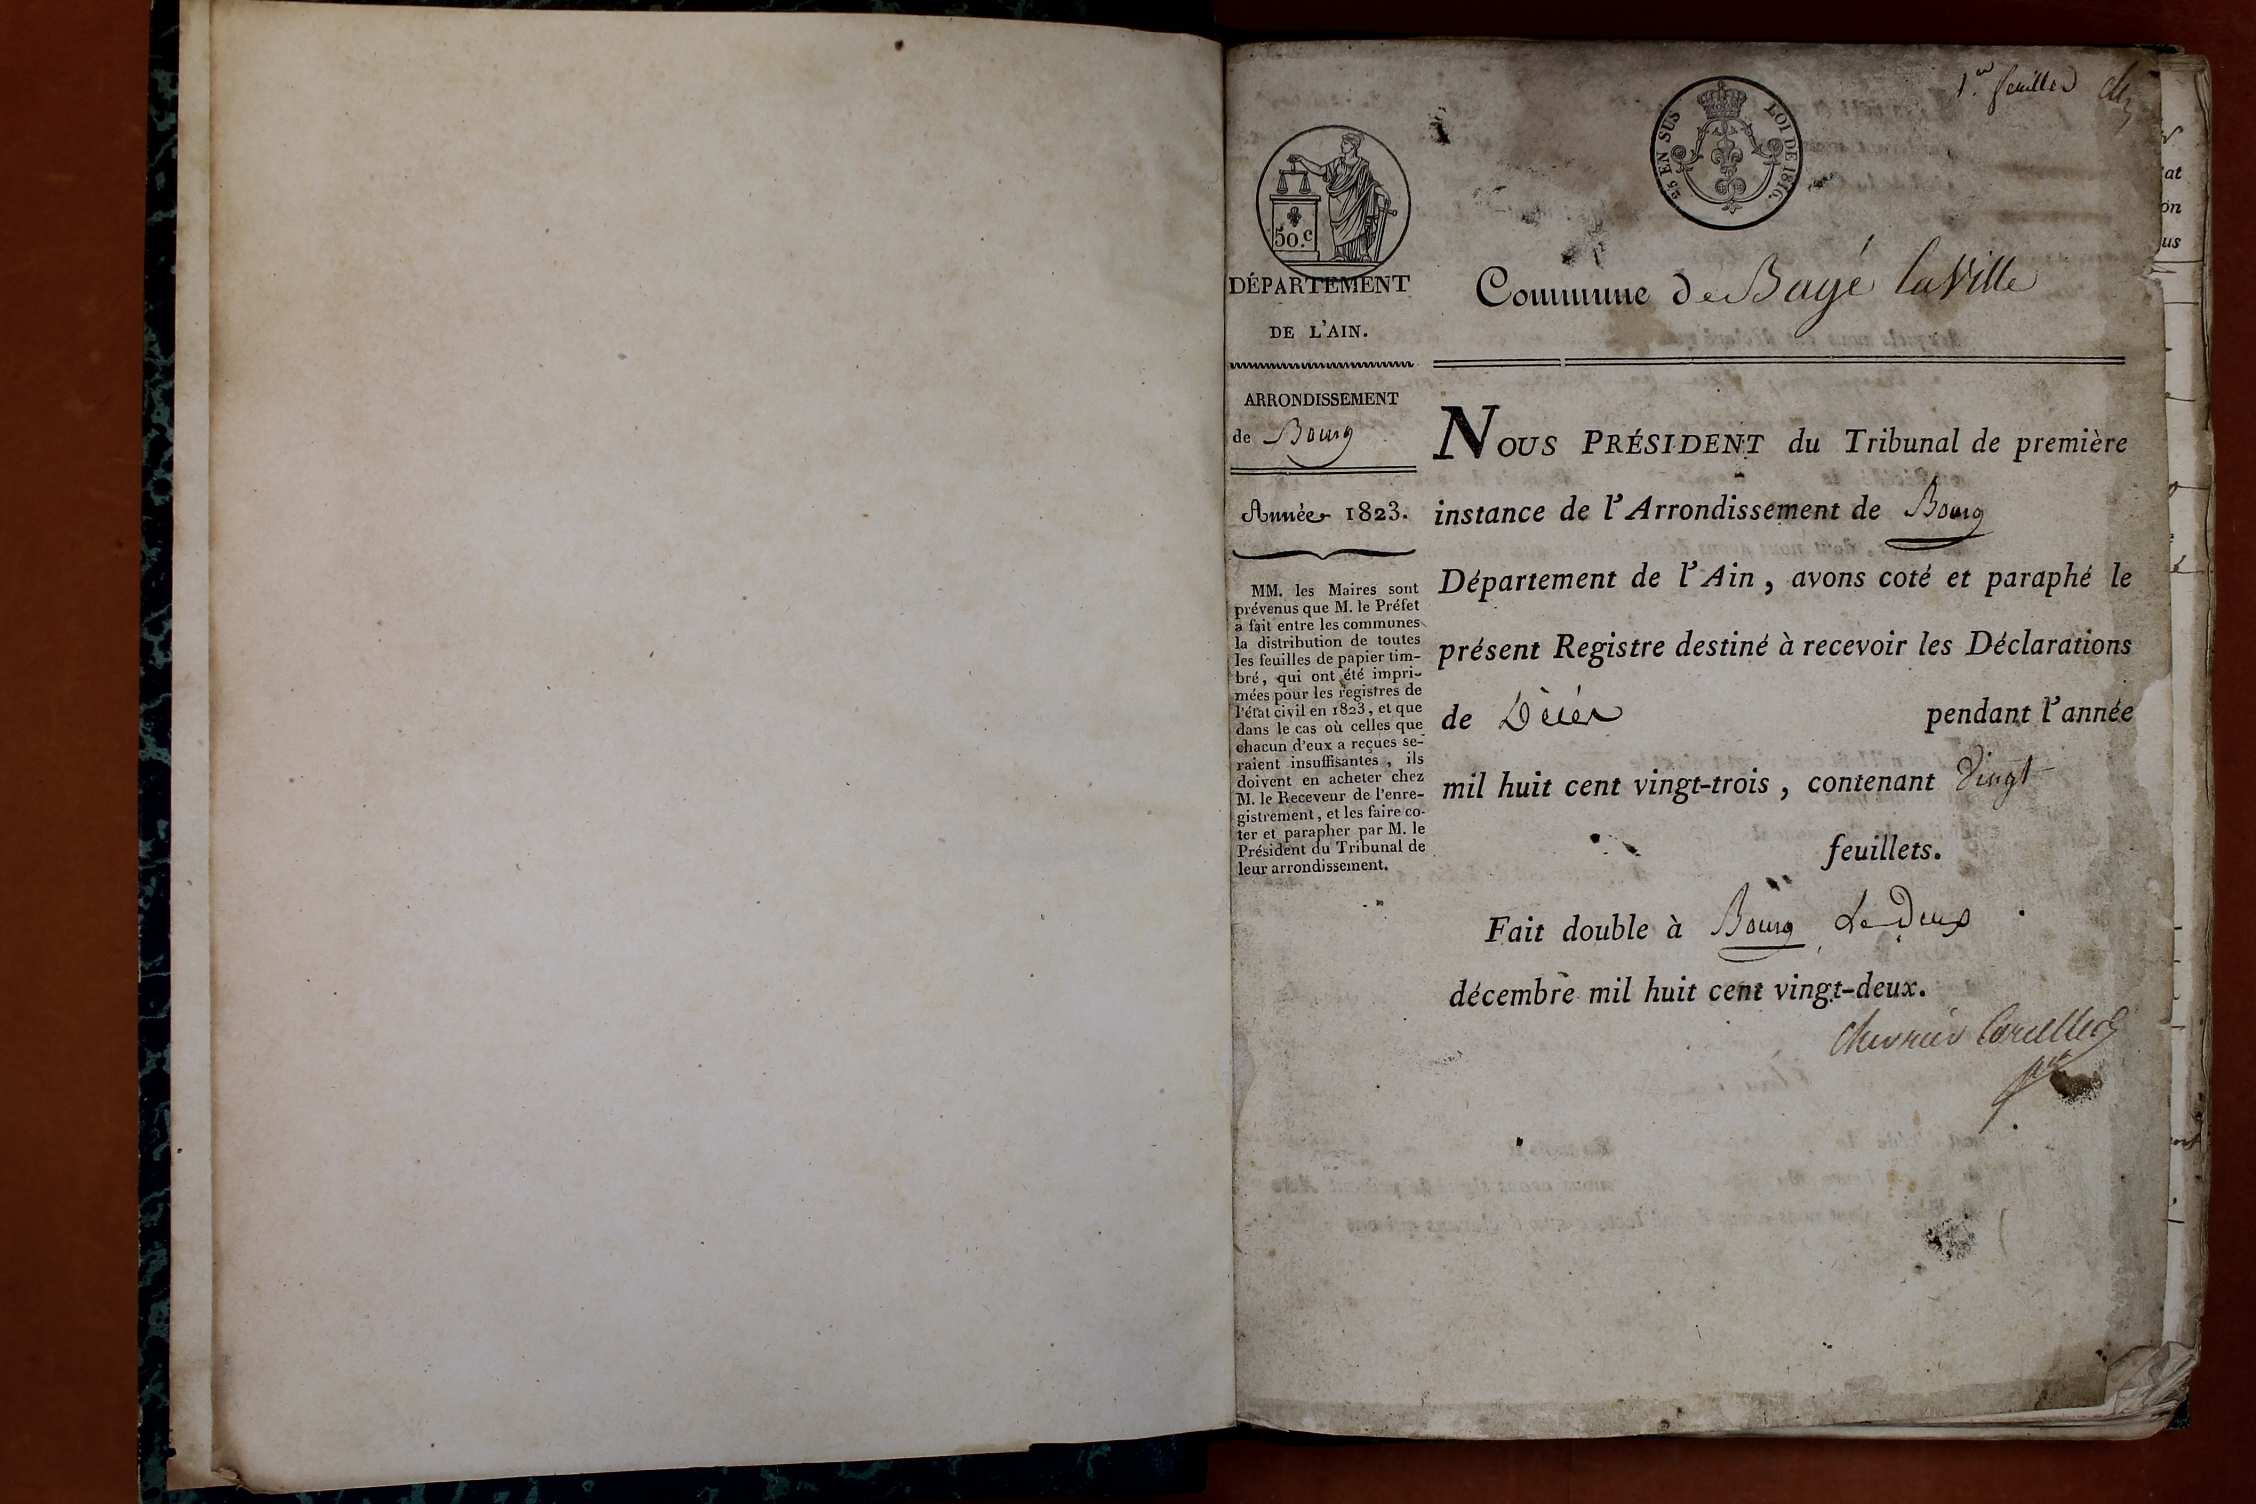 1er feuillet
25 EN SUS
LOI DE 1816.
50.c
DÉPARTEMENT
DE L'AIN.
ARRONDISSEMENT
de Bourg
Année 1823.
MM. les Maires sont
prévenus que M. le Préfet
a fait entre les communes
la distribution de toutes
les feuilles de papier tim-
bré, qui ont été impri-
mées pour les registres de
l'état civil en 1823, et que
dans le cas où celles que
chacun d'eux a reçues se-
raient insuffisantes, ils
doivent en acheter chez
M. le Receveur de l'enre-
gistrement, et les faire co-
ter et parapher par M. le
Président du Tribunal de
leur arrondissement.
Commune de Bagé la Ville
NOUS PRÉSIDENT du Tribunal de première
instance de l'Arrondissement de Bourg
Département de l'Ain, avons coté et paraphé le
présent Registre destiné à recevoir les Déclarations
de Décès pendant l'année
mil huit cent vingt-trois, contenant Vingt
feuillets.
Fait double à Bourg Le Deux
décembre mil huit cent vingt-deux.